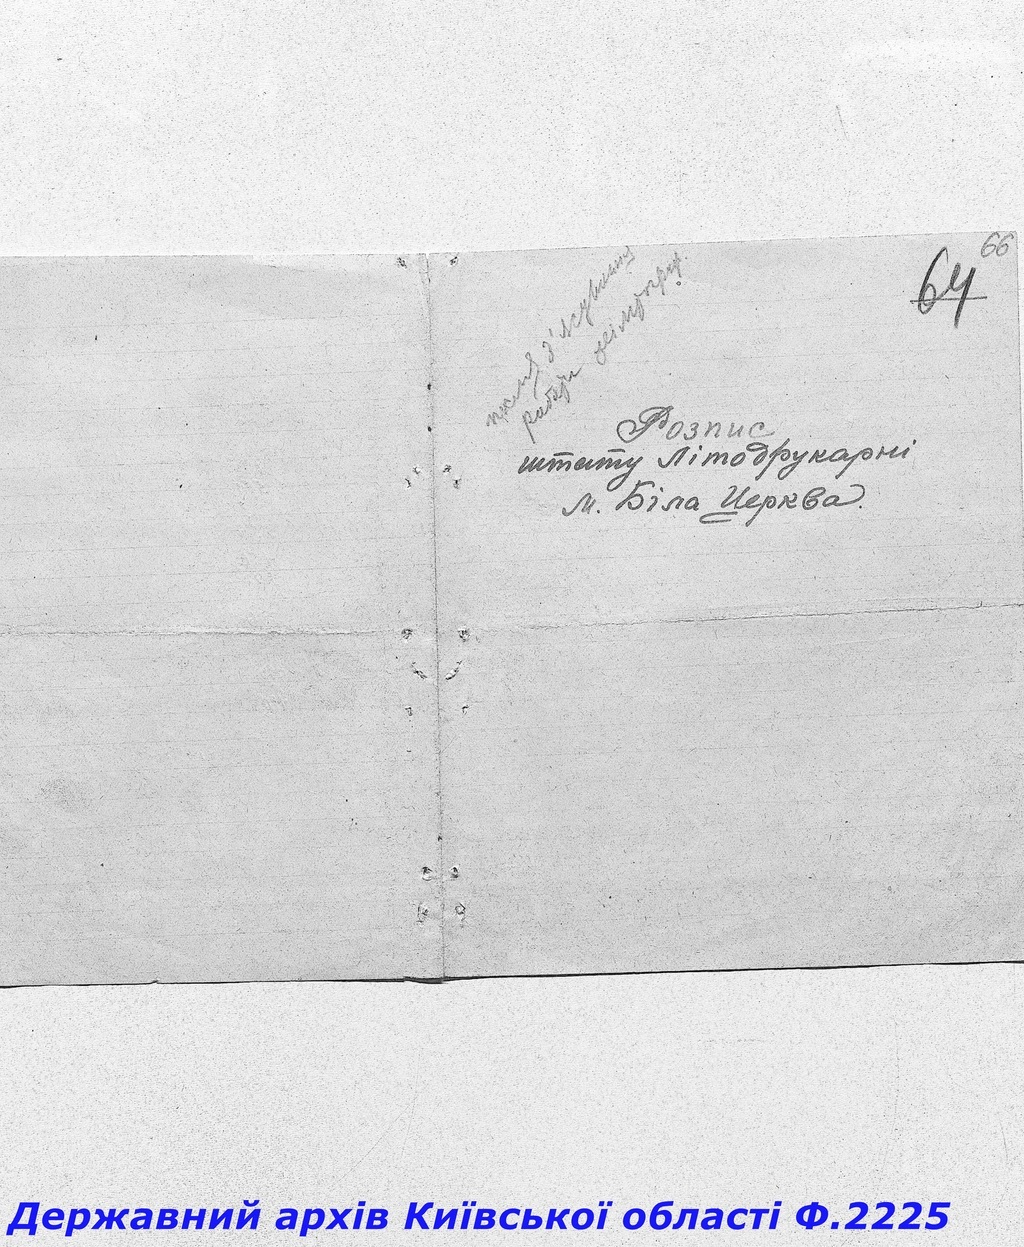 66
64
Розпис
штату Літодрукарні
м. Біла Церква.
Державний архів Київської області Ф.2225